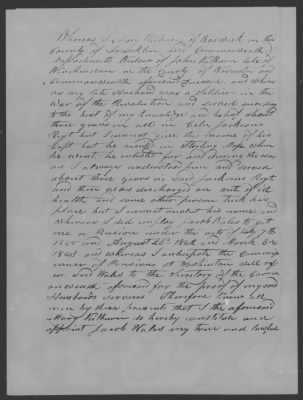 Whereas I Mary Kilburn of Warwick in the
County of Franklin and Commonwealth of
Massachusetts Widow of John Kilburn late of
Winchendon in the County of Worcester and
Commonwealth aforesaid deceased and where
as my late Husband was a soldier in the
war of the Revolution and served according
to the best of my knowledge and belief about
three years in all in Coln Jacksons
Regt but I cannot give the name of his
Capt but he resided in Sterling Mass when
he went he enlisted for and during the war
as I always understood him and served
about three years in said Jacksons Regt
and then was discharged on acct of ill
health and some other person took his
place but I cannot recolect his name and
whereas I did employ Jacob Wales to get
me a Pension under the acts of July 7th
and August 23d 1842 and March 3d
1843 and whereas I anticipate the Commis
sioner of Pensions at Washington will
said Wales to the Secretary of the Common
wealth aforesaid for the proof of my said
Husbands services Therefore Know all
men by these presents that I the aforesaid
Mary Kilburn do hereby constitute and
appoint Jacob Wales my true and lawful